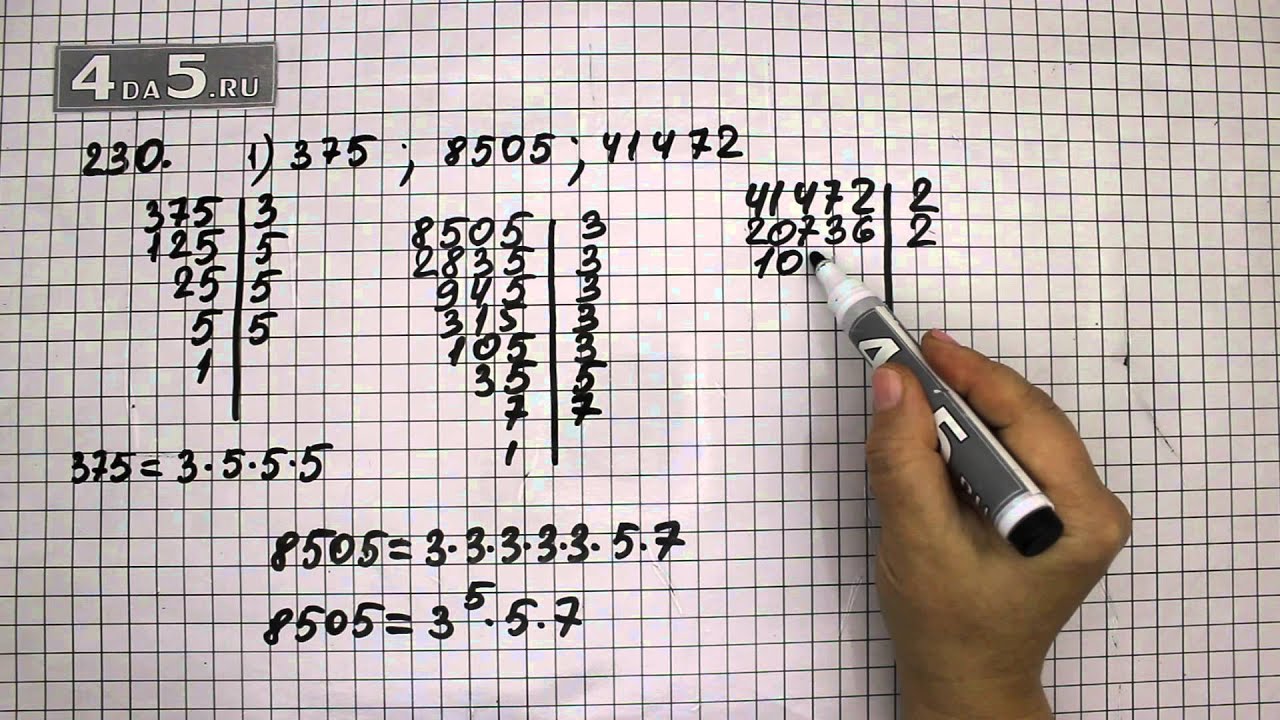 4DA5.RU
230. 1) 375 ; 8505 ; 41472
375 | 3
125 | 5
25 | 5
5 | 5
1 |
8505 | 3
2835 | 3
945 | 3
315 | 3
105 | 3
35 | 5
7 | 7
1 |
41472 | 2
20736 | 2
10
375 = 3·5·5·5
8505 = 3·3·3·3·3·5·7
8505 = 3⁵·5·7